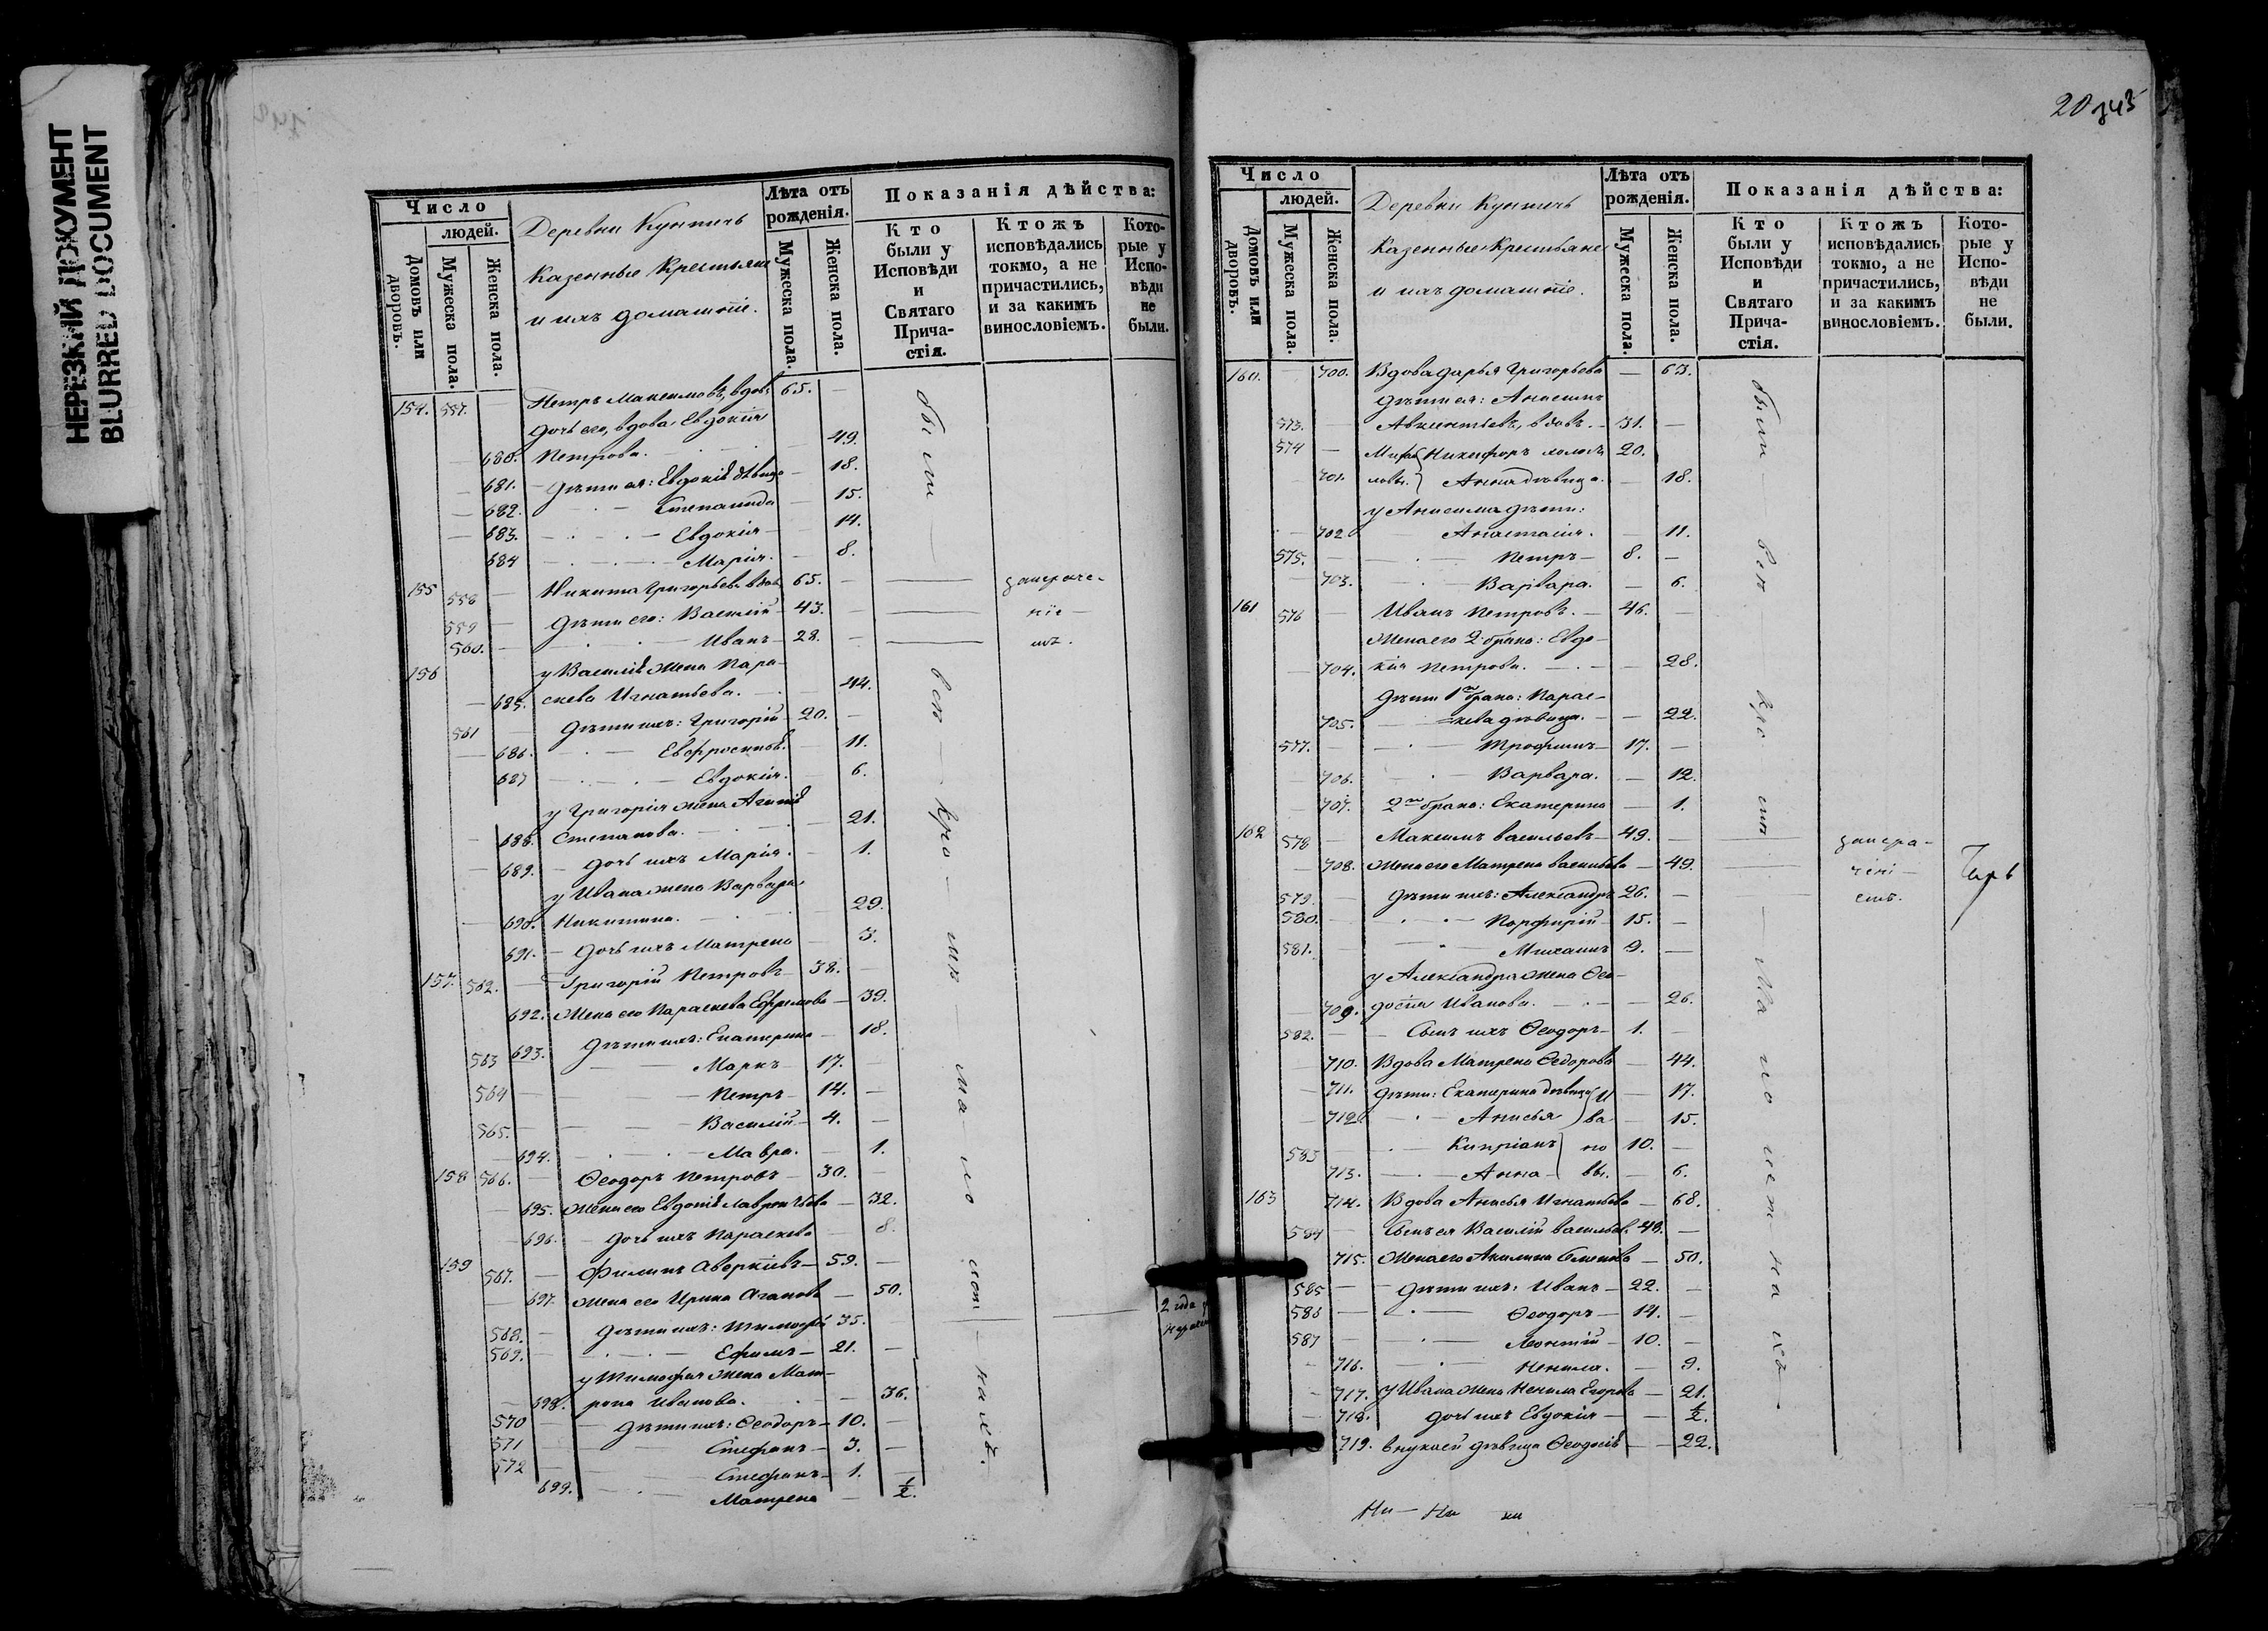 НЕРЕЗКИЙ ДОКУМЕНТ
BLURRED DOCUMENT
Число
людей.
Домовъ или дворовъ.
Мужеска пола.
Женска пола.
Деревни
Казенные Крестьяне
и ихъ домашніе.
Лѣта отъ рожденія.
Мужеска пола.
Женска пола.
Показанія дѣйства:
Кто были у Исповѣди и Святаго Прича-стія.
Ктожъ исповѣдались токмо, а не причастились, и за какимъ винословіемъ.
Кото-рые у Испо-вѣди не были.
154. 557. Петръ Максимовъ, вдовъ 65. —
дочь его, вдова Евдокія
680. Петрова. 49.
681. дѣти ея: Евдокія дѣвица 18.
682. Степанида 15.
683. Евдокія 14.
684 Марія. 8.
155 558 Никита Григорьевъ вдов 65.
559 дѣти его: Василій 43.
560. Иванъ 28.
156 у Василія жена Пара-
685. скева Игнатьева. 44.
561 дѣти ихъ: Григорій 20.
686. Евфросинія. 11.
687 Евдокія. 6.
у Григорія жена
688. Степанова. 21.
689. дочь ихъ Марія. 1.
у Ивана жена Варвара
690. Никитина. 29.
691. дочь ихъ Матрена 3.
157. 562. Григорій Петровъ 38.
692. Жена его Параскева Ефремова 39.
693. дѣти ихъ: Екатерина 18.
563 Маркъ 17.
564 Петръ 14.
565. Василій 4.
694. Мавра. 1.
158 566. Ѳеодоръ Петровъ 30.
695. Жена его Евдокія Лаврентьева 32.
696. дочь ихъ Параскева 8.
159 567. Филипъ Аверкіевъ 59.
697. жена его Ирина 50.
568. дѣти ихъ: Тимофей 35.
569. Ефимъ 21.
у Тимофея жена Мат-
698. рона Иванова. 36.
570 дѣти ихъ: Ѳеодоръ 10.
571 Стефанъ 3.
572 Стефанъ 1.
699. Матрена ½.
были всѣ
20 743
Число
людей.
Домовъ или дворовъ.
Мужеска пола.
Женска пола.
Деревни
Казенные Крестьяне
и ихъ домашніе.
Лѣта отъ рожденія.
Мужеска пола.
Женска пола.
Показанія дѣйства:
Кто были у Исповѣди и Святаго Прича-стія.
Ктожъ исповѣдались токмо, а не причастились, и за какимъ винословіемъ.
Кото-рые у Испо-вѣди не были.
160. 700. Вдова Дарья Григорьева 63.
дѣти ея: Анисимъ
573. Авксентьевъ, вдовъ. 31.
574 Никифоръ холостъ 20.
701. Анна дѣвица. 18.
у Анисима дѣти:
702 Анастасія. 11.
575. Петръ 8.
703. Варвара. 6.
161 576 Иванъ Петровъ. 46.
Жена его 2 брака: Евдо-
704. кія Петрова. 28.
дѣти 1го брака: Парас-
705. кева дѣвица. 22.
577. Трофимъ 17.
706. Варвара. 12.
707. 2го брака: Екатерина 1.
162 578 Максимъ Васильевъ 49.
708. Жена его Матрена Васильева 49.
579. дѣти ихъ: Александръ 26.
580. Порфирій 15.
581. Михаилъ 9.
у Александра жена Ѳео-
709. досія Иванова. 26.
582. Сынъ ихъ Ѳеодоръ 1.
710. Вдова Матрена Ѳедорова 44.
711. дѣти: Екатерина дѣвица 17.
712. Анисья 15.
583 Кипріанъ 10.
713. Анна 6.
163 714. Вдова Анисья Игнатьева 68.
584 Сынъ ея Василій Васильевъ 48.
715. Жена его Акилина 50.
585 дѣти ихъ: Иванъ 22.
586 Ѳеодоръ 14.
587 Леонтій 10.
716. Ненила. 9.
717. У Ивана жена Ненила Егорова 21.
718. дочь ихъ Евдокія ½.
719. внука ей дѣвица Ѳеодосія 22.
были всѣ